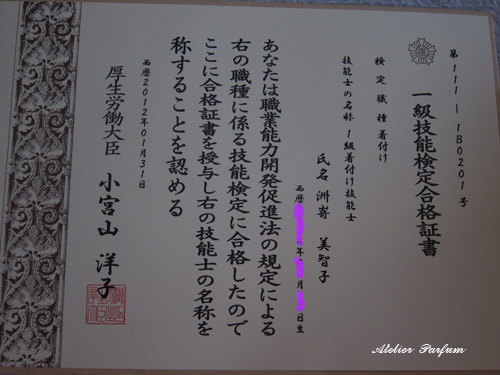 第111-1B0201号
一級技能検定合格証書
検定職種 着付け
技能士の名称 1級着付け技能士
氏名 洲嵜 美智子
西暦 年 月 日生
あなたは職業能力開発促進法の規定による
右の職種に係る技能検定に合格したので
ここに合格証書を授与し右の技能士の名称を
称することを認める
西暦2012年01月31日
厚生労働大臣 小宮山 洋子
Atelier Parfum